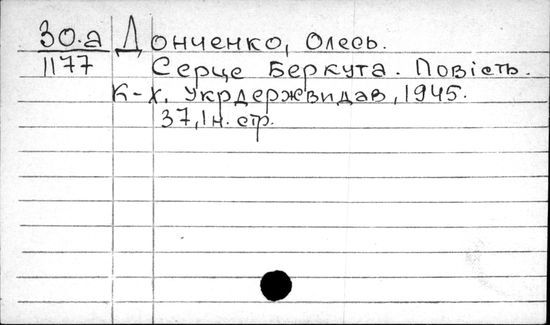 30.а Донченко, Олесь.
1177 Серце Беркута. Повість.
К-Х, Укрдержвидав, 1945.
37, 1н. стр.